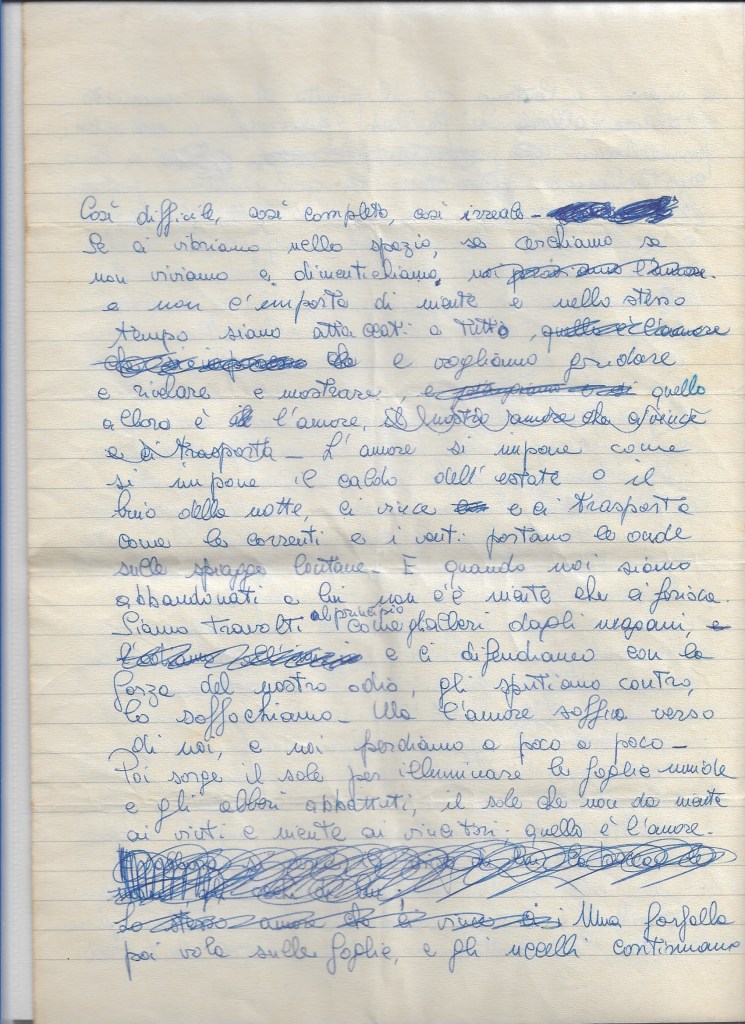 Così difficile, così completo, così irreale -
Se ci vibriamo nello spazio, se cerchiamo se
non viviamo e dimentichiamo, noi possiamo l'amore.
e non c'importa di niente e nello stesso
tempo siamo attaccati a tutto, quello è l'amore
che e vogliamo gridare
e ridare e mostrare, e quello
allora è l'amore, il nostro amore che ci vince
e ci trasporta - L'amore si impone come
si impone il caldo dell'estate o il
buio della notte, ci vince e ci trasporta
come le correnti e i venti portano le onde
sulle spiagge lontane - E quando noi siamo
abbandonati a lui non c'è niente che ci ferisca.
Siamo travolti al principio come gli alberi dagli uragani, e
e ci difendiamo con la
forza del nostro odio, gli sputiamo contro,
lo soffochiamo - Ma l'amore soffia verso
di noi, e noi perdiamo a poco a poco -
Poi sorge il sole per illuminare le foglie umide
e gli alberi abbattuti, il sole che non da niente
ai vinti e niente ai vincitori. quello è l'amore.
Lo stesso amore che ci vince Una farfalla
poi vola sulle foglie, e gli uccelli continuano